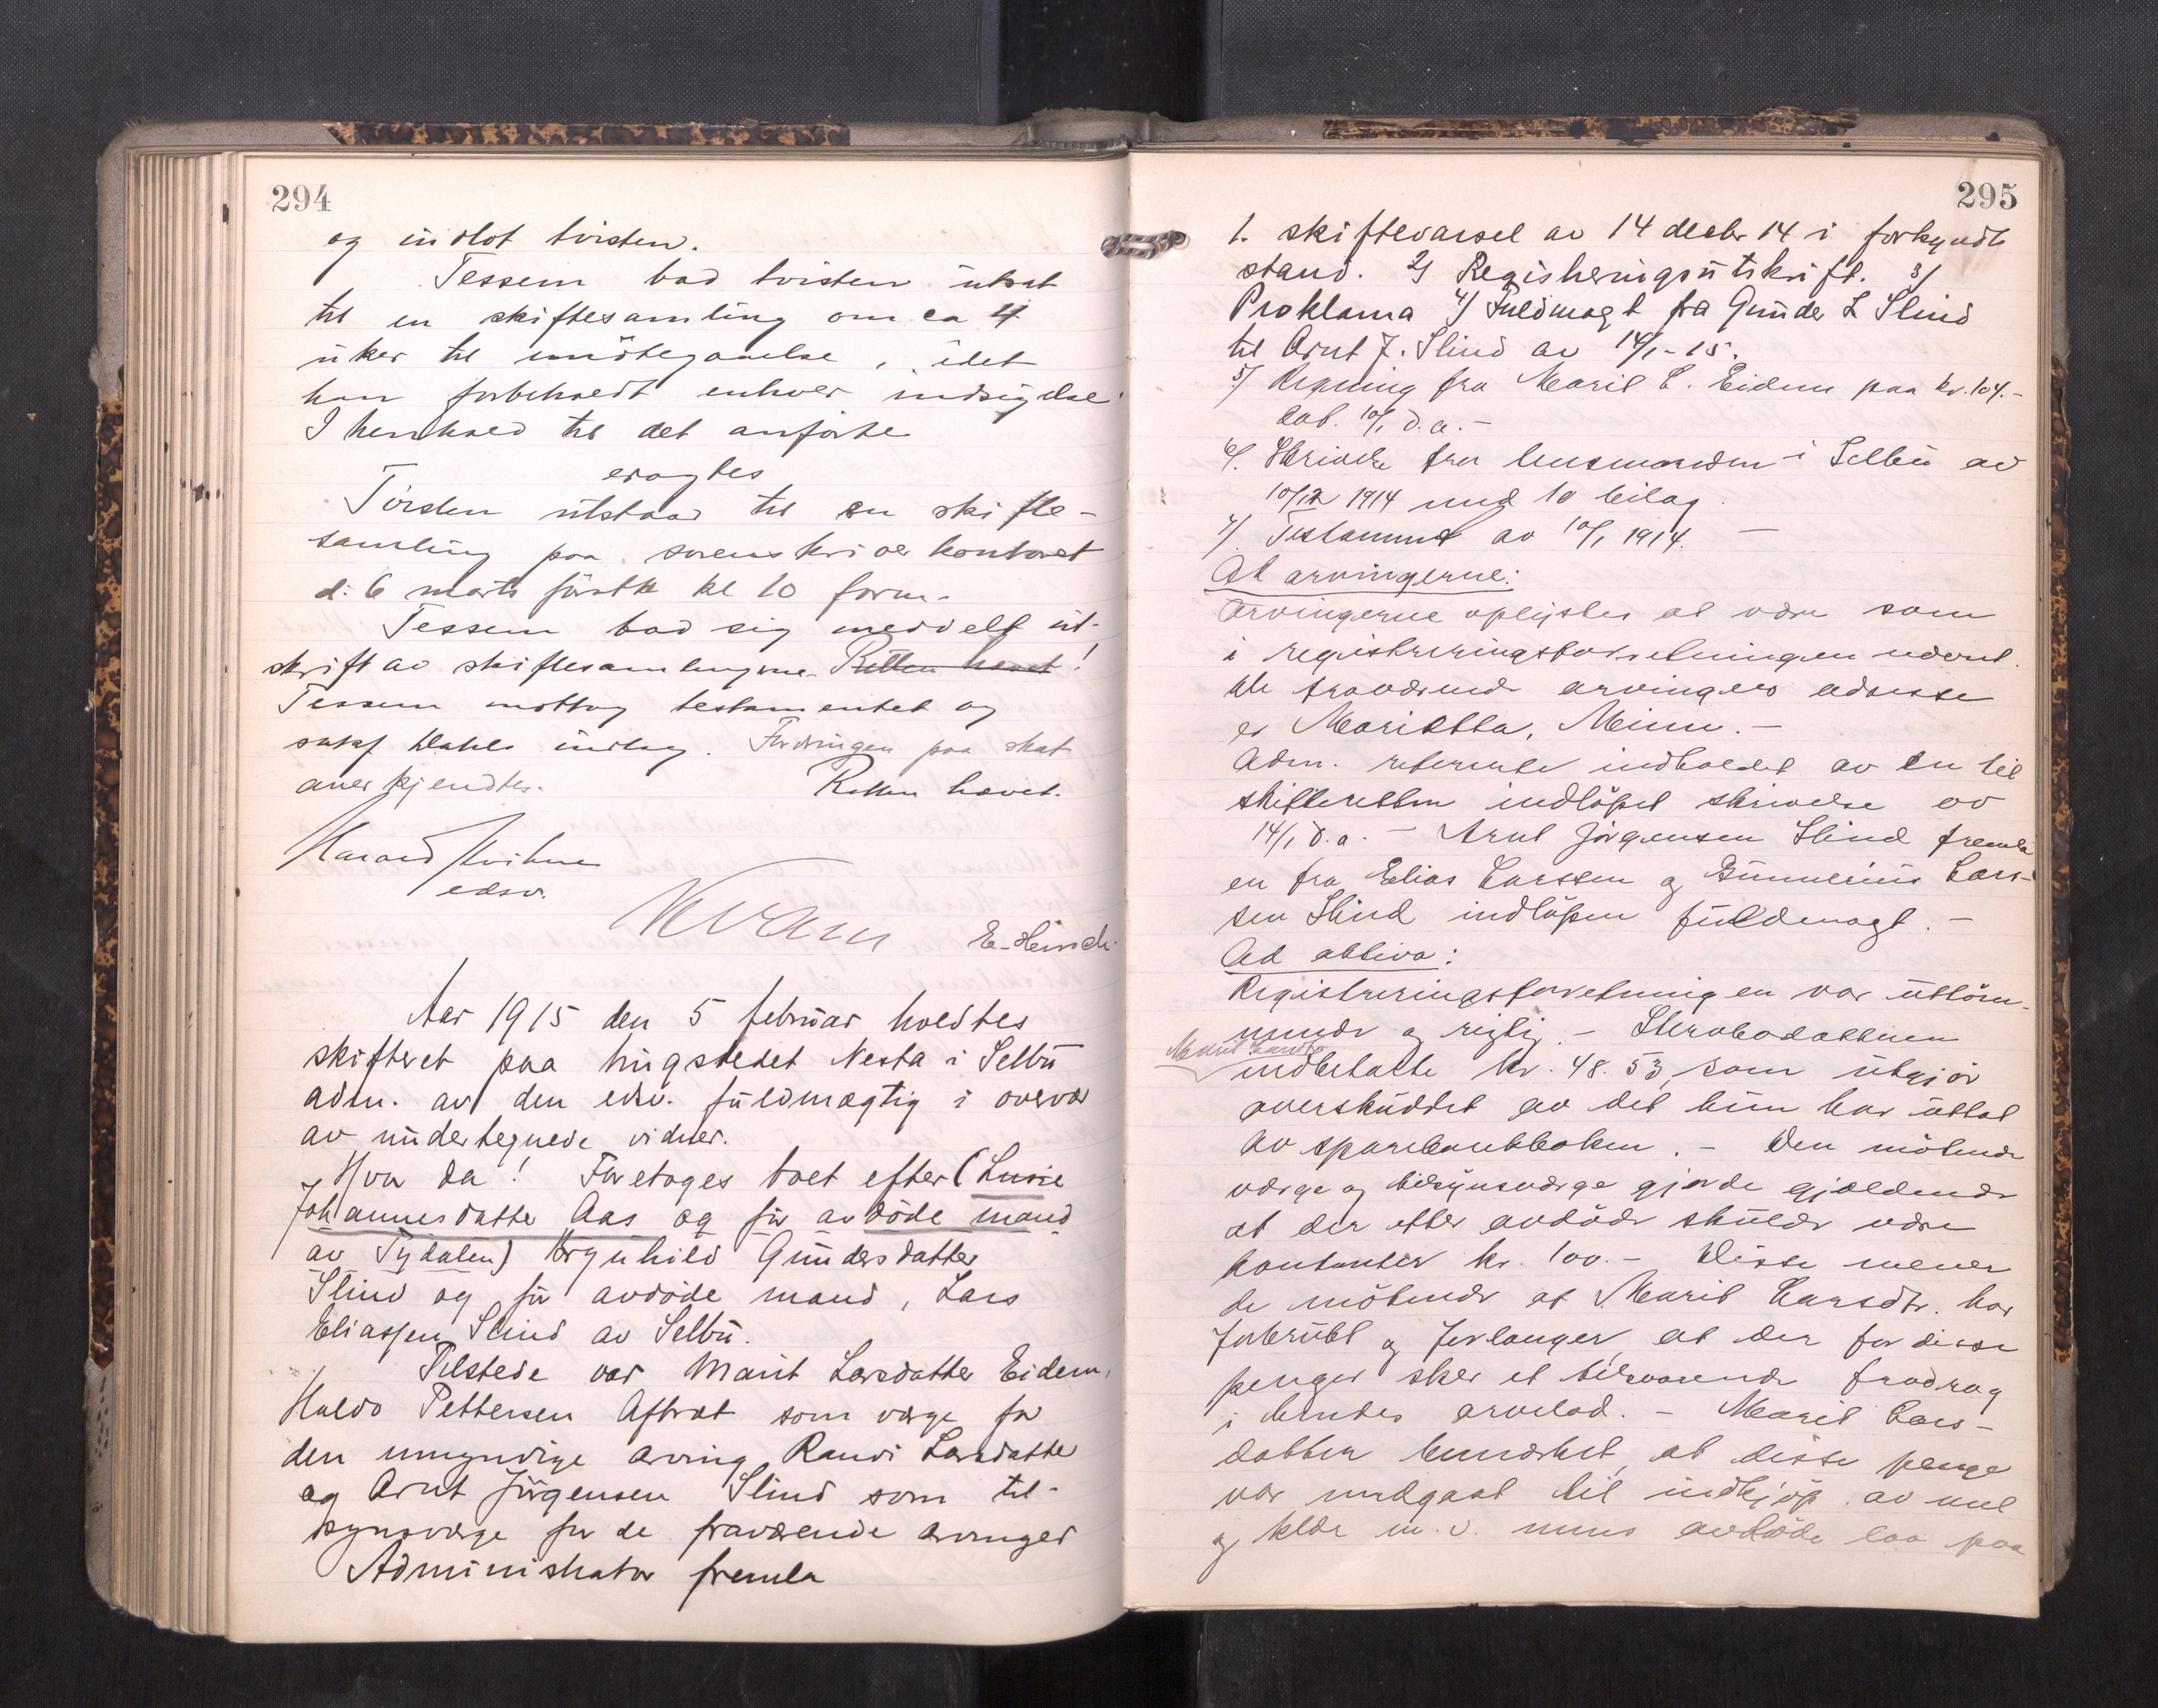 294
og indlot tvisten.
Tessem bad tvisten utsat
til en skiftesamling om ca 4
uker til imötegaaelse, idet
han forbeholdt enhver indsigelse.
I henhold til det anförte
eragtes
Tvisten utstaar til en skifte-
samling paa sorenskriverkontoret
d. 6 marts förstk kl 10 form.
Tessem bad sig meddelt ut-
skrift av skiftesamlingerne. Retten hævet!
Tessem mottog testamentet og
sakf Dahls indlæg. Fordringen paa skat
anerkjendtes. Retten hævet.
Harald
edsv.
E. Hirsch.
Aar 1915 den 5 februar holdtes
skifteret paa tingstedet Nesta i Selbu
adm. av den edsv. fuldmægtig i overvær
av undertegnede vidner.
Hvor da! Foretages boet efter (Lusie
Johannesdatter Aas og för avdöde mand
av Tydalen) Ragnhild Gundersdatter
Slind og för avdöde mand, Lars
Eliassen Slind av Selbu.
Tilstede var Marit Larsdatter Eidem,
Haldo Pettersen Aftret som værge for
den umyndige arving Randi Larsdatter
og Arnt Jörgensen Slind som til-
synsværge for de fraværende arvinger
Administrator fremla
295
1. skiftevarsel av 14 decbr 14 i forkyndt
stand. 2) Registreringsutskrift. 3)
Proklama 4) Fuldmagt fra Gunder L Slind
til Arnt J. Slind av 14/1-15.
5) Regning fra Marit L. Eidem paa kr. 104.-
dat. 10/1 d.a.-
6). Skrivelse fra lensmanden i Selbu av
10/12 1914 med 10 bilag.
7). Testament av 10/1 1914. -
Ad arvingerne:
Arvingerne oplystes at være som
i registreringsforretningen nævnt.
De fraværende arvingers adresse
er Marietta, Minn. -
Adm. refererte indholdet av en til
skifteretten indlöpet skrivelse av
14/1 d.a. - Arnt Jörgensen Slind fremla
en fra Elias Larssen og Gunnerius Lars-
sen Slind indlöpen fuldmagt. -
Ad aktiva:
Registreringsforretningen var uttöm-
mende og rigtig. -
Marit Larsdtr
indbetalte kr. 48.53, som utgjör
overskuddet av det hun har uttat
av sparebankboken. - Den mötende
værge og tilsynsværge gjorde gjældende
at der efter avdöde skulde være
kontanter kr. 100. - Disse mener
de mötende at Marit Larsdtr. har
forbrukt og forlanger, at der for disse
penger sker et tilsvarende fradrag
i hendes arvelod. - Marit Lars-
datter bemerket, at disse penge
var medgaat til indkjöp av mel
og klær m.v. mens avdöde laa paa